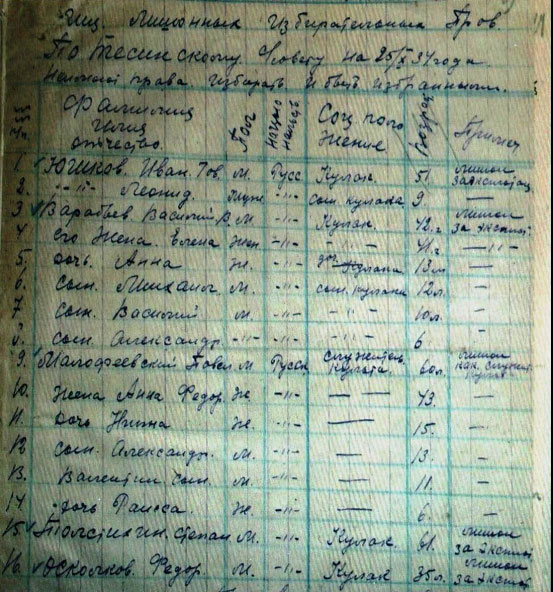 Лиц Лишонных Избирательных Пров
По Тесинскому Совету на 25/X 34 года.
избарать и быть избранными.
№ Фамилия имя отчество. Пол национальность Соц поло жение Возрас Примеч
1. Юшков. Иван. М. Русс Кулак. 51. лишон за эксплотац
2. -"- Леонид. Муж -"- сын. кулака 9. —
3. Варабьев. Василий В. М. -"- Кулак. 42. г лишон за эксплот
4 его Жена. Елена Жен -"- -"- 41. г — " —
5. дочь. Анна Ж. -"- дч Кулака 13 л —
6. сын. Михаил. М. -"- сын. кулака 12 л. —
7. сын. Василий М. -"- -"- 10 л. —
8. сын. Александр. -"- -"- 6 —
9. Малофеевский Павел М Русск служитель культа. 60 л. лишон как служит культ
10. жена Анна Федор. Ж. -"- — 43. —
11. дочь Нина Ж. -"- — 15. —
12 сын. Александр. М. -"- — 13. —
13. Валентин сын. М. -"- — 11. —
14 дочь Раисса. Ж. -"- — 6. —
15. Толстихин. Степан М. -"- Кулак. 61. лишон за эксплот
16. Осколков. Федор. М. -"- Кулак 35 л. лишон за эксплот